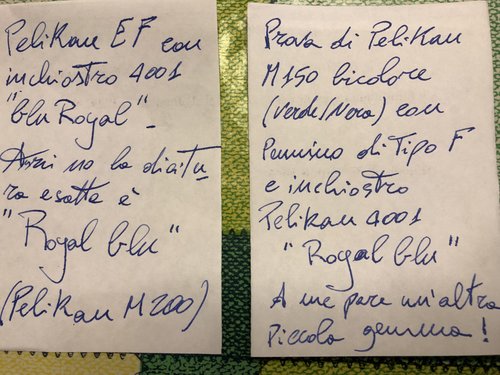 Pelikan EF con
inchiostro 4001
"blu Royal" -
Anzi no la dicitu
ra esatta è
"Royal blu"
(Pelikan M200)
Prova di Pelikan
M150 bicolore
(Verde/Nera) con
Pennino di Tipo F
e inchiostro
Pelikan 4001
"Royal blu"
A me pare un'altra
Piccola gemma!